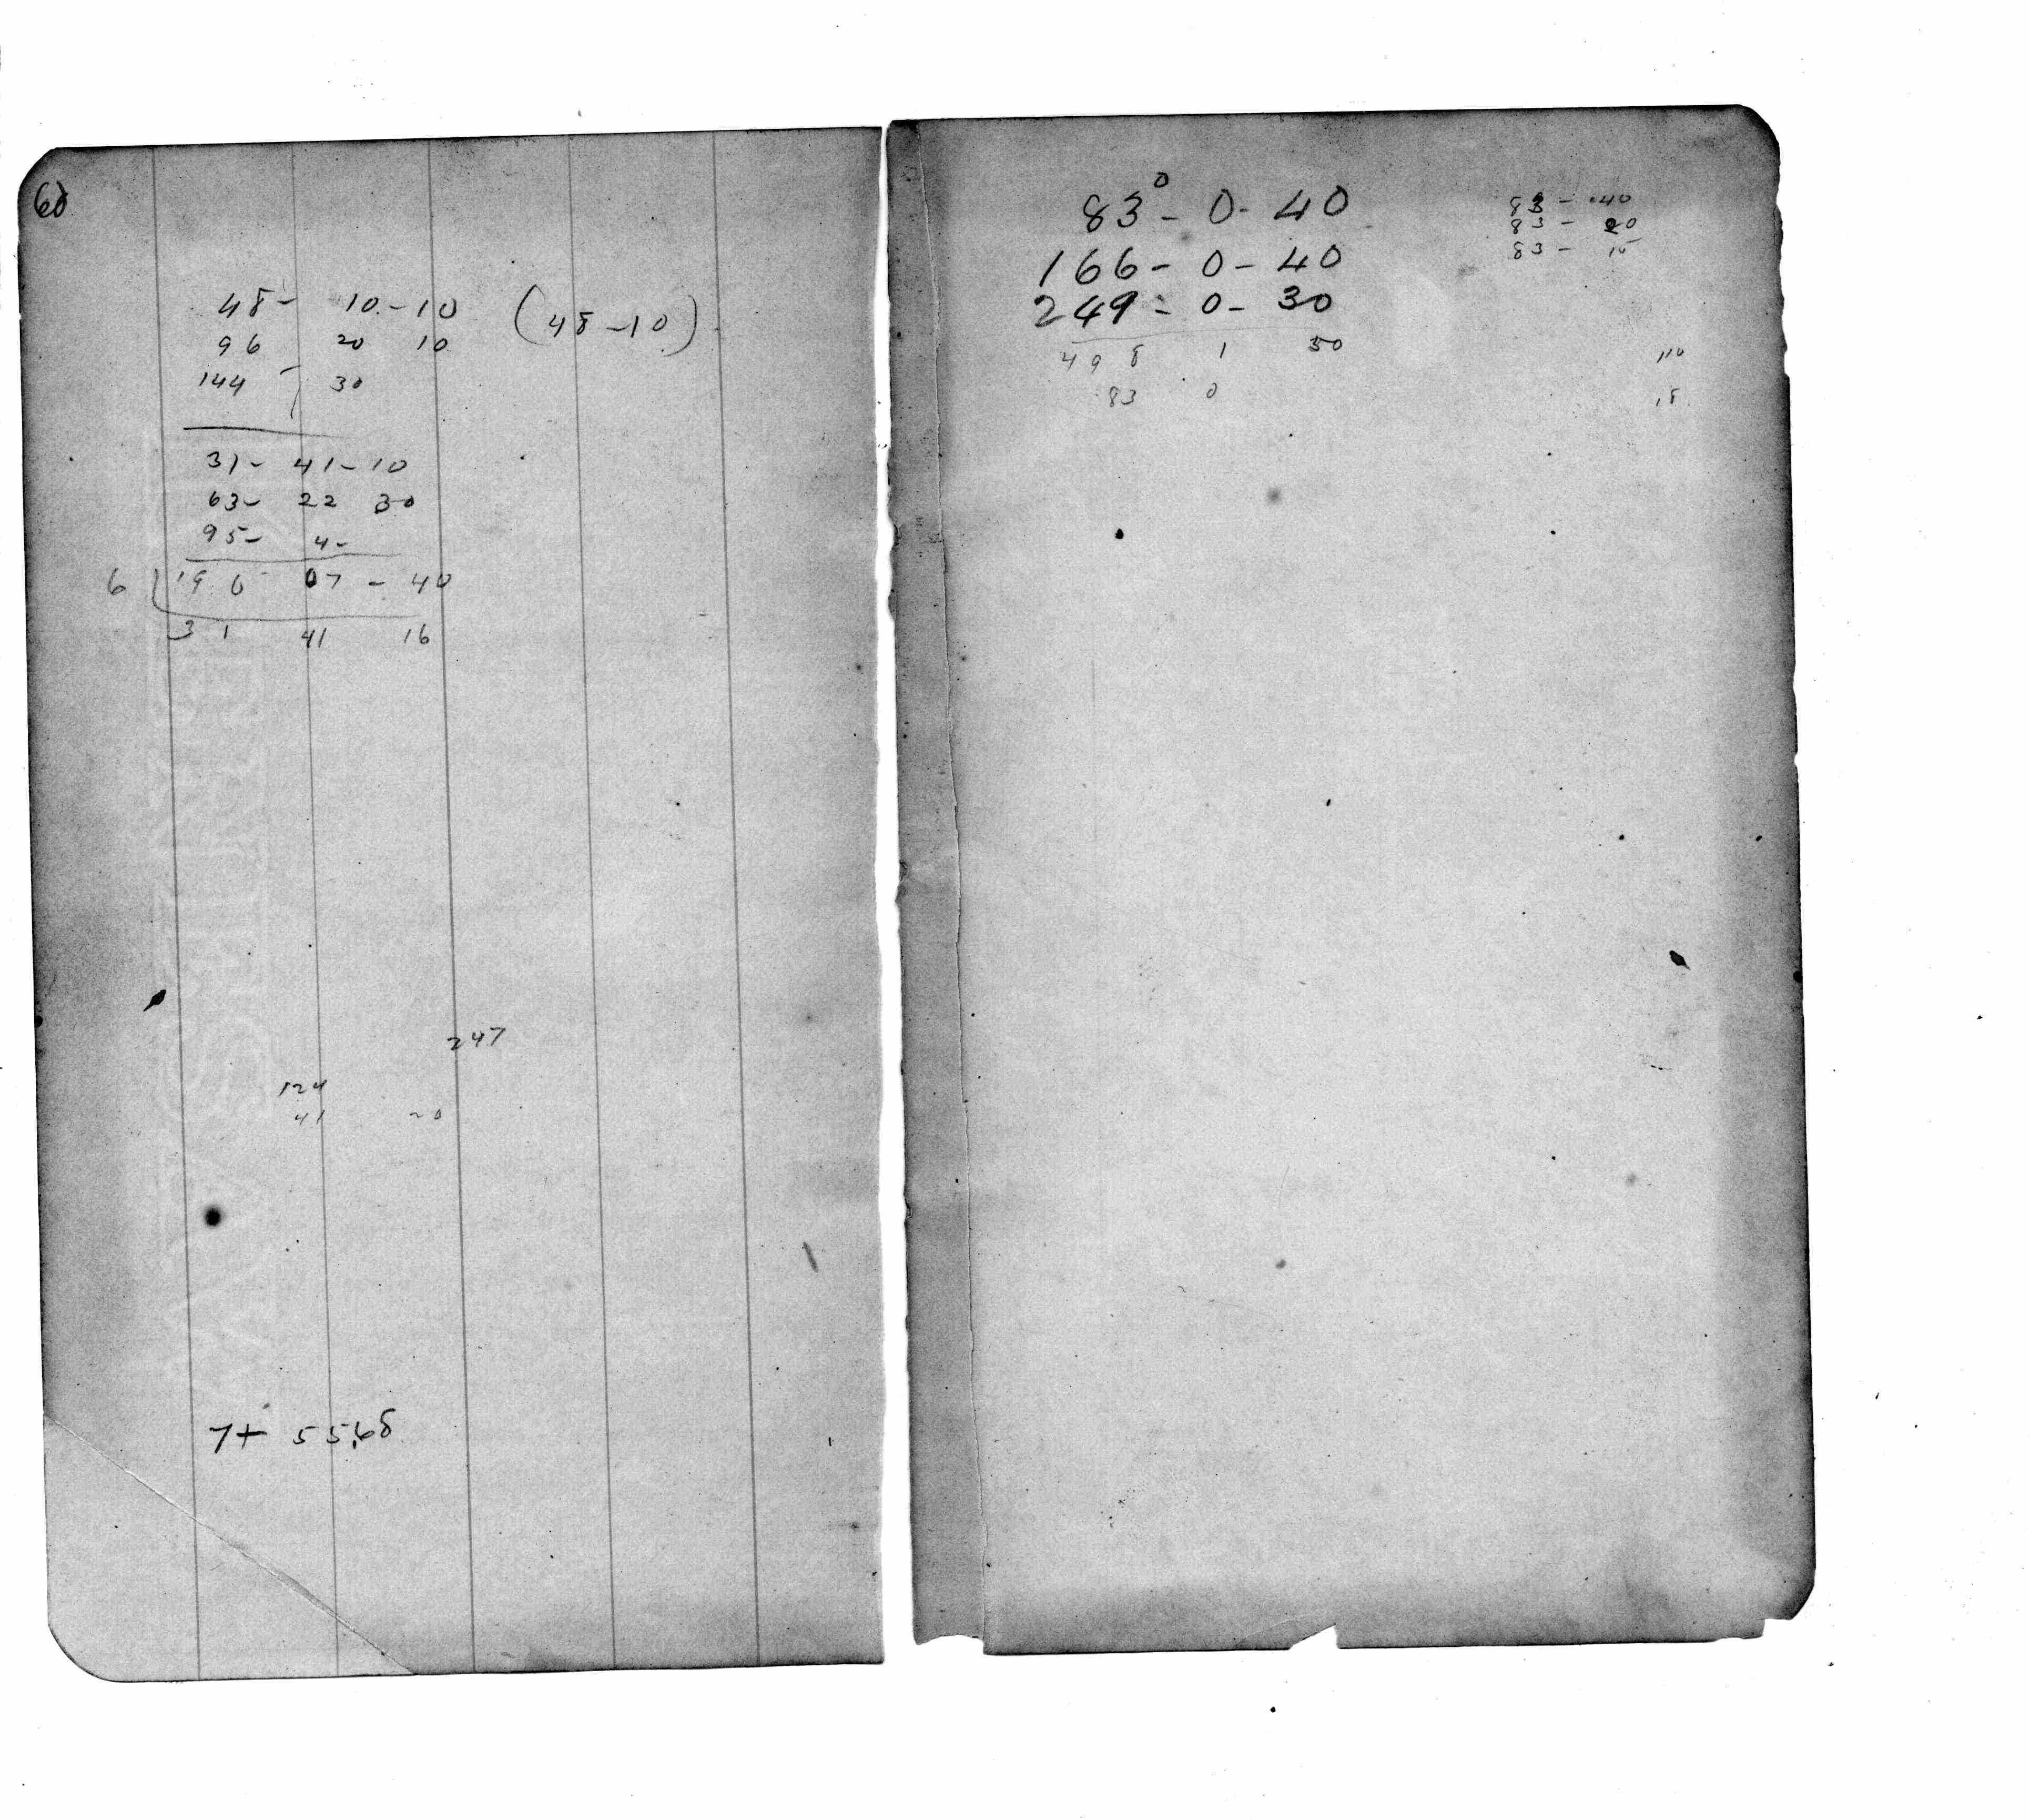 60
48- 10-10 (48-10)
96 20 10
144 30
31- 41-10
63- 22 30
95- 4-
6 190 07-40
31 41 16
247
124
41 20
7+ 55.68
83° - 0- 40
166- 0- 40
249- 0- 30
498 1 50
83 0
83 - 40
83 - 20
83 - 10
110
18